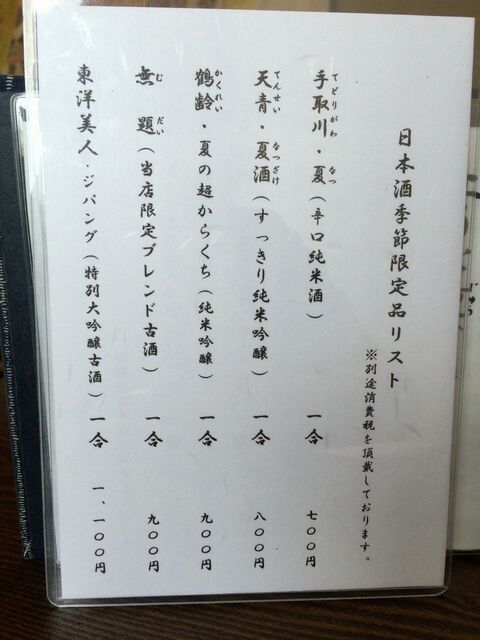 日本酒季節限定品リスト
※別途消費税を頂戴しております。
手取川・夏（辛口純米酒） 一合 七〇〇円
てどりがわ なつ
天青・夏酒（すっきり純米吟醸） 一合 八〇〇円
てんせい なつざけ
鶴齢・夏の超からくち（純米吟醸） 一合 九〇〇円
かくれい
無題（当店限定ブレンド古酒） 一合 九〇〇円
むだい
東洋美人・ジパング（特別大吟醸古酒） 一合 一、一〇〇円